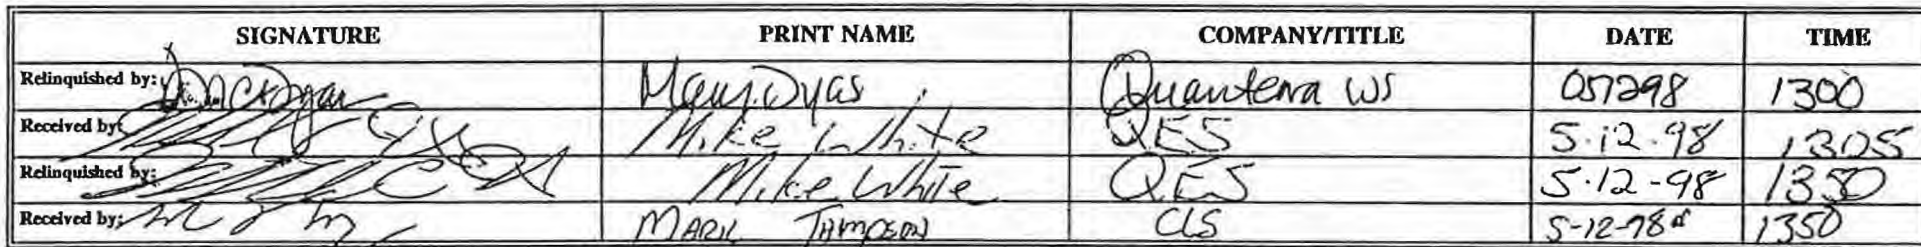 SIGNATURE PRINT NAME COMPANY/TITLE DATE TIME
Relinquished by: Quanterra WS 051298 1300
Received by: Mike White QES 5-12-98 1305
Relinquished by: Mike White QES 5-12-98 1350
Received by: MARK CLS 5-12-98 1350